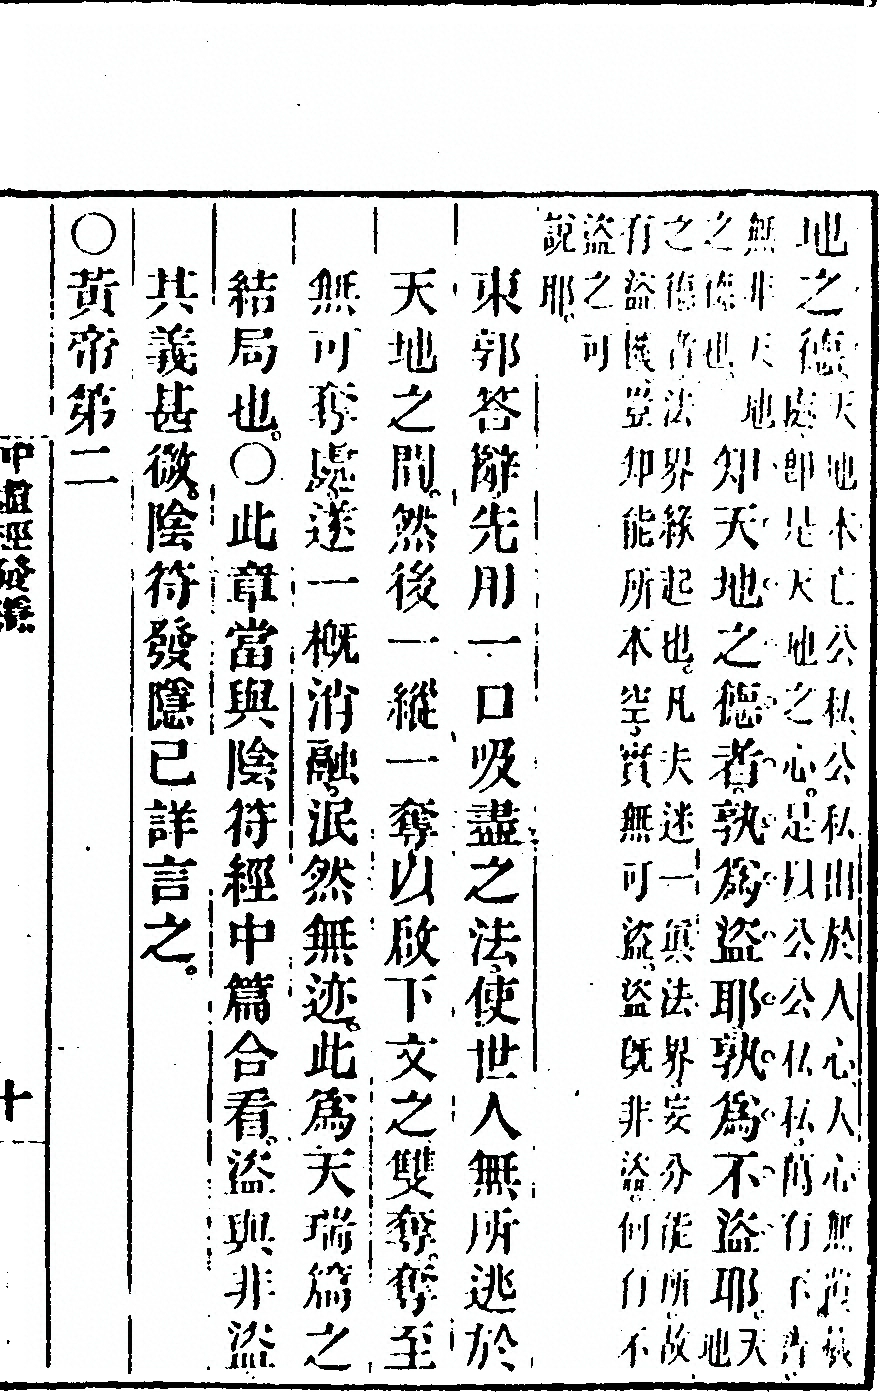 地之德天地本亡公私公私出於人心人心無
處即是天地之心是以公公私私
無非天地
之德也知天地之德者孰為盜耶孰為不盜耶天地
之德者法界緣起也凡夫迷一眞法界妄分能所故
有盜機豈却能所本空實無可盜盜旣非盜何有不
盜之可
說耶
東郭答辭先用一口吸盡之法使世人無所逃於
天地之間然後一縱一奪以啟下文之雙奪奪至
無可奪處遂一槪消融泯然無迹此為天瑞篇之
結局也○此章當與陰符經中篇合看盜與非盜
其義甚微陰符發隱已詳言之
○黃帝第二
冲虛經發隱
十